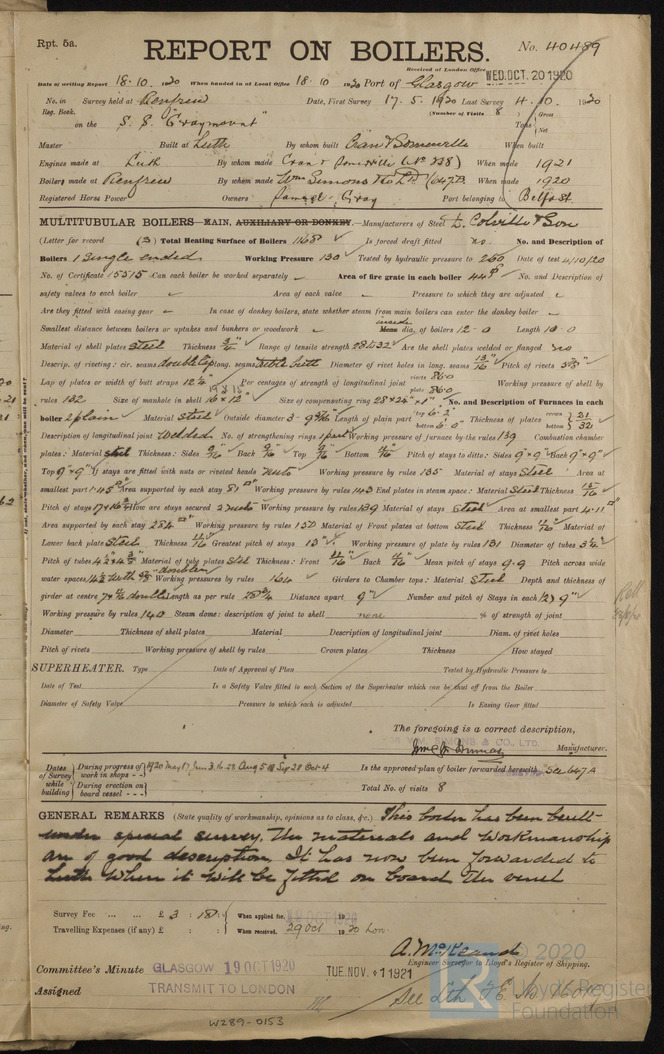 Rpt. 5a.
REPORT ON BOILERS.
No. 40489
Received at London Office WED. OCT. 20 1920
Date of writing Report 18.10.20 When handed in at Local Office 18.10.1920 Port of Glasgow
No. in Survey held at Renfrew Date, First Survey 17.5.1920 Last Survey 4.10.1920
Reg. Book. (Number of Visits 8) Gross
on the S.S. "Graymount" Tons Net
Master Built at Leith By whom built Cran & Somerville When built
Engines made at Leith By whom made Cran & Somerville (No 138) When made 1921
Boilers made at Renfrew By whom made Wm Simons & Co Ld (647B) When made 1920
Registered Horse Power Owners Gray Port belonging to Belfast
MULTITUBULAR BOILERS—MAIN, AUXILIARY OR DONKEY.—Manufacturers of Steel D. Colville & Son
(Letter for record (S) Total Heating Surface of Boilers 1168 Is forced draft fitted no No. and Description of
Boilers 1 Single ended Working Pressure 130 Tested by hydraulic pressure to 260 Date of test 4/10/20
No. of Certificate 15515 Can each boiler be worked separately Area of fire grate in each boiler 44 No. and Description of
safety valves to each boiler Area of each valve Pressure to which they are adjusted
Are they fitted with easing gear In case of donkey boilers, state whether steam from main boilers can enter the donkey boiler
Smallest distance between boilers or uptakes and bunkers or woodwork inside Mean dia. of boilers 12-0 Length 10-0
Material of shell plates Steel Thickness 3/4 Range of tensile strength 28 to 32 Are the shell plates welded or flanged no
Descrip. of riveting: cir. seams double lap long. seams butt Diameter of rivet holes in long. seams 13/16 Pitch of rivets
Lap of plates or width of butt straps 12 1/4 Per centages of strength of longitudinal joint rivets 86.0 plate Working pressure of shell by
rules 132 Size of manhole in shell 16 x 12 Size of compensating ring 28 x 24 x 1 No. and Description of Furnaces in each
boiler 2 plain Material Steel Outside diameter Length of plain part top 6-2 bottom 6-0 Thickness of plates crown bottom 21/32
Description of longitudinal joint Welded No. of strengthening rings Working pressure of furnace by the rules 139 Combustion chamber
plates: Material Steel Thickness: Sides 9/16 Back 9/16 Top 9/16 Bottom Pitch of stays to ditto: Sides 9 x 9 Back 9 x 9
Top 9 x 9 If stays are fitted with nuts or riveted heads nuts Working pressure by rules 135 Material of stays Steel Area at
smallest part 1.45 Area supported by each stay 81 Working pressure by rules 143 End plates in steam space: Material Steel Thickness
Pitch of stays How are stays secured 2 nuts Working pressure by rules 139 Material of stays Steel Area at smallest part 4.11
Area supported by each stay 284 Working pressure by rules 150 Material of Front plates at bottom Steel Thickness 11/16 Material of
Lower back plate Steel Thickness 11/16 Greatest pitch of stays 13 Working pressure of plate by rules 131 Diameter of tubes 3 1/4
Pitch of tubes Material of tube plates Steel Thickness: Front Back Mean pitch of stays 9.9 Pitch across wide
water spaces 14 1/2 Working pressures by rules 164 Girders to Chamber tops: Material Steel Depth and thickness of
girder at centre double Length as per rule Distance apart 9" Number and pitch of Stays in each (2) 9"
Working pressure by rules 140 Steam dome: description of joint to shell none % of strength of joint
Diameter Thickness of shell plates Material Description of longitudinal joint Diam. of rivet holes
Pitch of rivets Working pressure of shell by rules Crown plates Thickness How stayed
SUPERHEATER. Type Date of Approval of Plan Tested by Hydraulic Pressure to
Date of Test Is a Safety Valve fitted to each Section of the Superheater which can be shut off from the Boiler
Diameter of Safety Valve Pressure to which each is adjusted Is Easing Gear fitted
The foregoing is a correct description,
WM. SIMONS & CO., LTD.
Manufacturer.
Dates of Survey while building During progress of work in shops - - 1920 May 17 Jun 3. 16. 28 Aug 5. Sep 28 Oct 4 Is the approved plan of boiler forwarded herewith See 647A
During erection on board vessel - - - Total No. of visits 8
GENERAL REMARKS (State quality of workmanship, opinions as to class, &c.) This boiler has been built
under special survey. The materials and workmanship
are of good description. It has now been forwarded to
Leith where it will be fitted on board the vessel
Survey Fee ... ... £ 3 : 18 : When applied for, 19 OCT 1920
Travelling Expenses (if any) £ : : When received, 29 Oct 1920 Lon.
A. McKeand
Engineer Surveyor to Lloyd's Register of Shipping.
Committee's Minute GLASGOW 19 OCT 1920 TUE. NOV. 1 1921
Assigned TRANSMIT TO LONDON
See Lth F.E. No 16049
W289-0153
© 2020
Lloyd's Register
Foundation